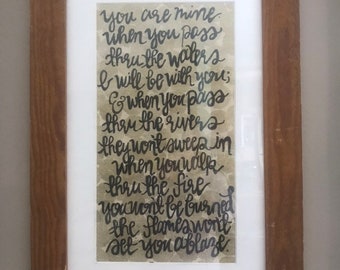 you are mine.
when you pass
thru the waters
I will be with you;
& when you pass
thru the rivers
they won't sweep in
when you walk
thru the fire
you won't be burned
the flames won't
set you ablaze